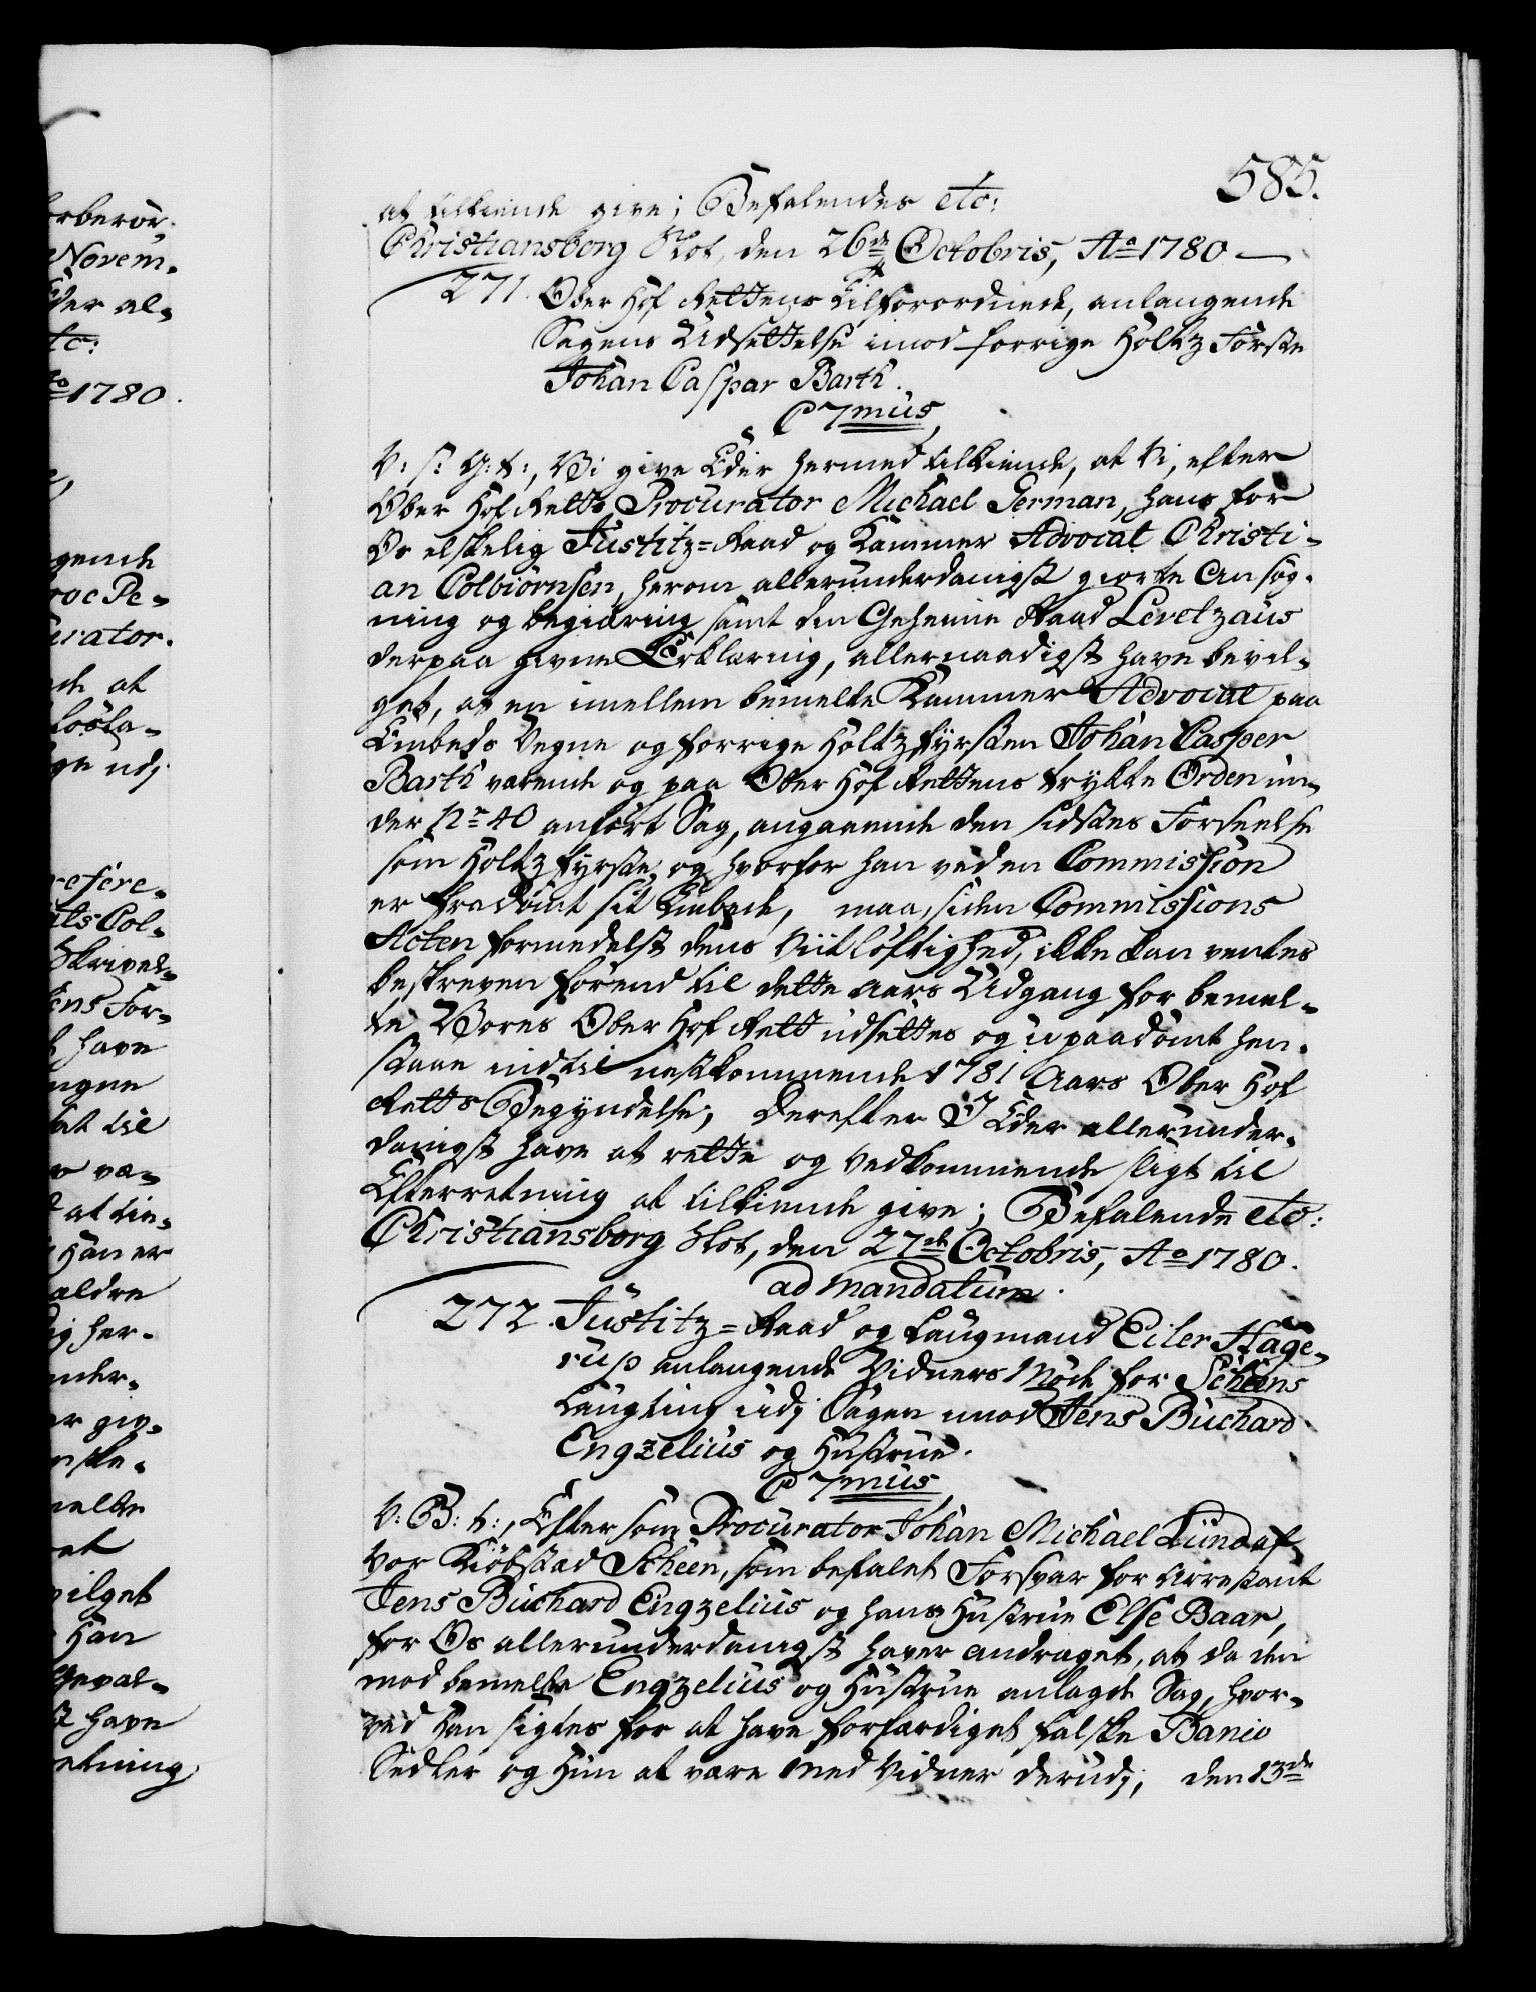 585.
at tilkiende give; Befalendes etc:
Christiansborg Slot, den 26de Octobris, Ao 1780 —
271. Ober Hof Rettens Tilforordnede, anlangende
Sagens Udsettelse imod forrige Holtz Förste
Johan Caspar Barth.
C 7mus,
V: s: G: t:, Vi give Eder hermed tilkiende, at Vi, efter
Ober Hof Retts Procurator Michael German, hans for
Os elskelig Justitz=Raad og Kammer Advocat Christi-
an Colbiörnsen, herom allerunderdanigst giorte Ansög-
ning og begiering samt den Geheime Raad Levetzaus
derpaa givne Erklæring, allernaadigst have bevil-
get, at en imellem bemelte Kammer Advocat paa
Embeds Vegne og forrige Holtzfyrsten Johan Casper
Barth værende og paa Ober Hof Rettens trykte Orden un-
der No 40 anfört Sag, angaaende den sidstes Forseelse
som Holtzfyrste, og hvorfor han ved en Commission
er fradömt sit Embede, maa, siden Commissions
Acten formedelst dens Viitlöftighed, ikke kan ventes
beskreven förend til dette Aars Udgang for bemel-
te Vores Ober Hof Rett udsettes og upaadömt hen-
staae indtil nestkommende 1781 Aars Ober Hof
Retts Begyndelse; Derefter I Eder allerunder-
danigst have at rette og vedkommende sligt til
Efterretning at tilkiende give; Befalende etc:
Christiansborg Slot, den 27de Octobris, Ao 1780.
ad mandatum.
272. Justitz=Raad og Laugmand Eiler Hage-
rup anlangende Vidners Möde for Scheens
Laugting udj Sagen imod Jens Buchard
Engzelius og Hustrue.
C 7mus,
V: B: t:, Eftersom Procurator Johan Michael Lund af
Vor Kiöbstæd Scheen, som befalet Forsvar for Arrestant
Jens Buchard Engzelius og hans Hustrue Else Baar,
for Os allerunderdanigst haver andraget, at da den
mod bemelte Engzelius og Hustrue anlagde Sag, hvor-
ved Han sigtes for at have forfærdiget falske Banco
Sedler og Hun at være Med Vidner derudj, den 13de